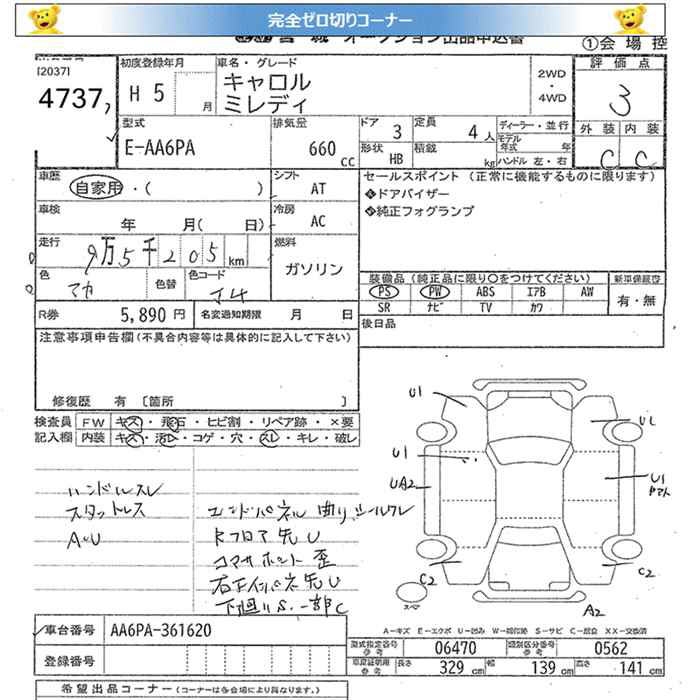 完全ゼロ切りコーナー
オークション出品申込書
①会場控
[2037]
4737
初度登録年月
H 5
月
車名・グレード
キャロル
ミレディ
2WD
・
4WD
評価点
3
外装 内装
C C
型式
E-AA6PA
排気量
660 CC
ドア 3
定員 4 人
ディーラー・並行
モデル年式 年
形状 HB
積載 kg
ハンドル 左・右
車歴
自家用・( )
シフト
AT
セールスポイント (正常に機能するものに限ります)
◆ドアバイザー
◆純正フォグランプ
車検
年 月( 日)
冷房
AC
走行
9万5千205 km
燃料
ガソリン
色
マカ
色替
色コード
装備品 (純正品に限り○をつけてください)
新車保証書
PS PW ABS エアB AW
SR ナビ TV カワ
有・無
R券
5,890 円
名変通知期限 月 日
後日品
注意事項申告欄 (不具合内容等は具体的に記入して下さい)
修復歴 有 〔箇所 〕
検査員 FW キズ・飛石・ヒビ割・リペア跡・×要
記入欄 内装 キズ・汚レ・コゲ・穴・スレ・キレ・破レ
ハンドルスレ
スタットレス
AU
エンドパネル曲り、シールワレ
Rフロア先U
コアサポート歪
右インパネ先U
下廻りS.一部C
U1
U1
U1
UA2
U1
C2
C2
A2
スペア
A-キズ E-エクボ U-凹み W-補修跡 S-サビ C-腐食 XX-交換済
車台番号
AA6PA-361620
登録番号
型式指定番号 参考 06470
類別区分番号 参考 0562
車庫証明用 参考 長さ 329 cm 幅 139 cm 高さ 141 cm
希望出品コーナー (コーナーは各会場により異なります。)